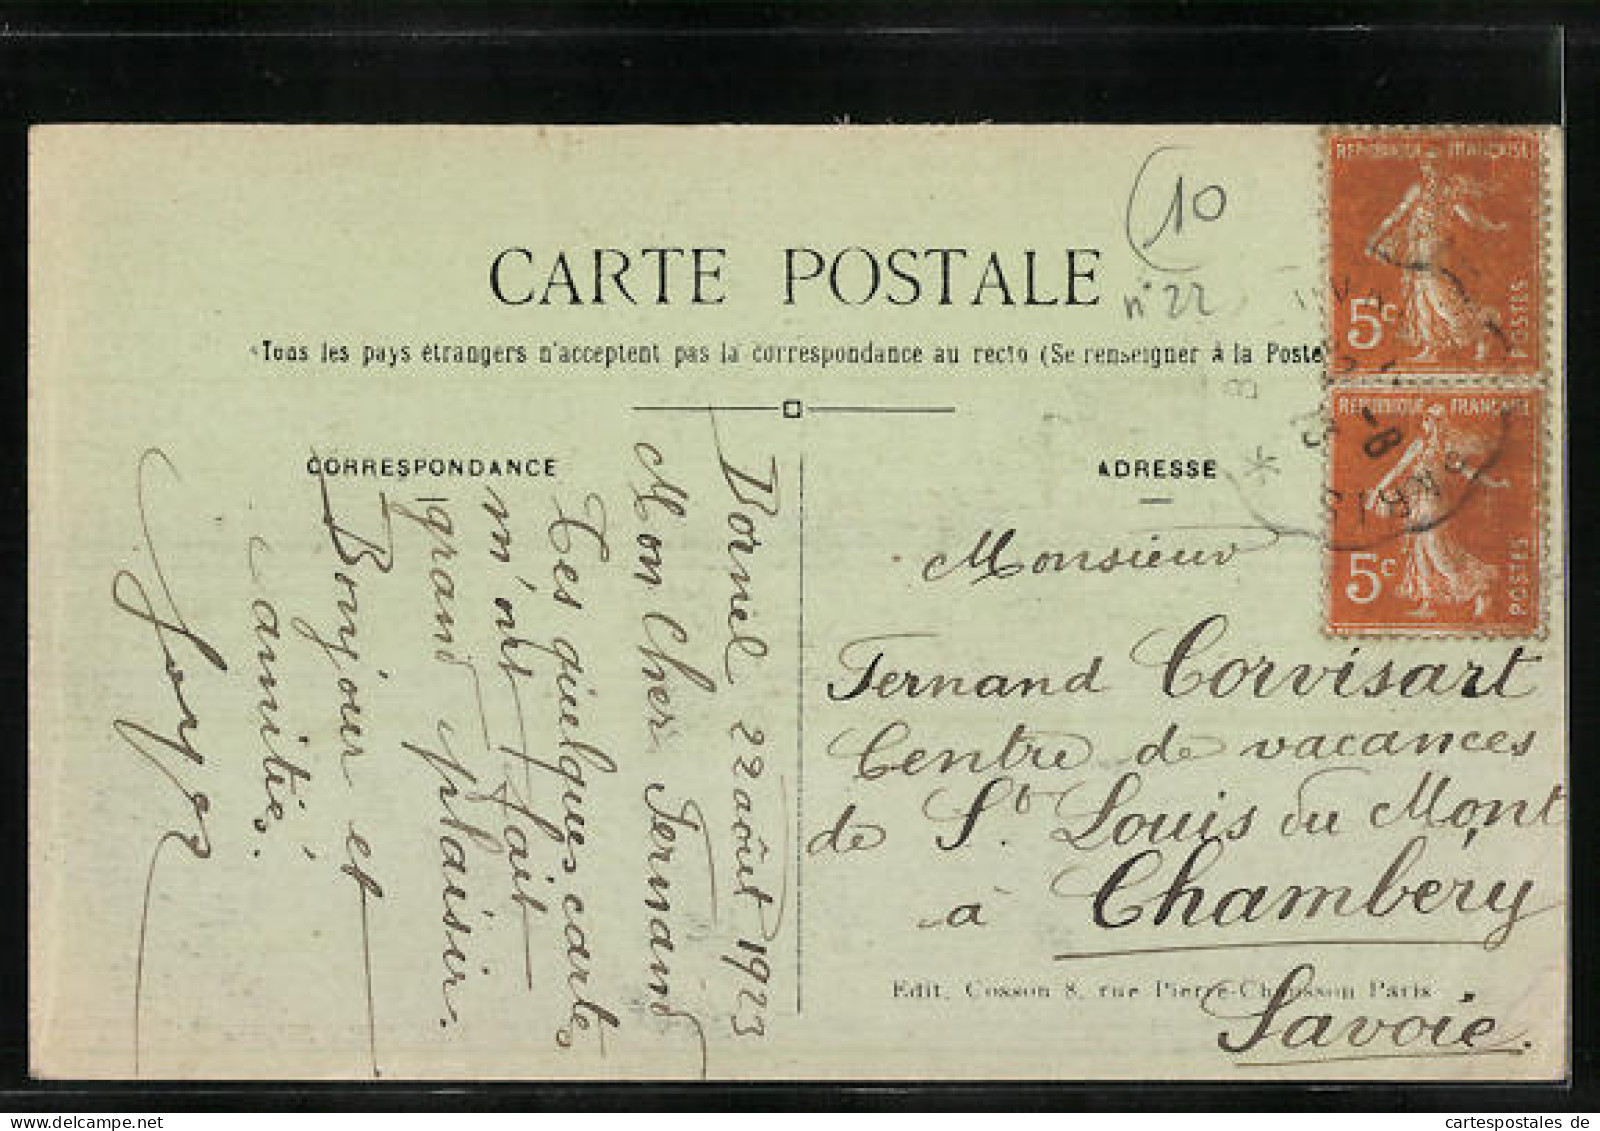 CARTE POSTALE
Tous les pays étrangers n'acceptent pas la correspondance au recto (Se renseigner à la Poste
(10
n° 22
CORRESPONDANCE
ADRESSE
Bornel 22 août 1923
Mon Cher Fernand
Ces quelques cartes
m'ont fait
grand plaisir.
Bonjour et
amitiés.
Monsieur
Fernand Corvisart
Centre de vacances
de St Louis du Mont
à Chambéry
Savoie.
Edit. Cosson 8, rue Pierre-Chausson Paris
REPUBLIQUE FRANÇAISE
5c
POSTES
REPUBLIQUE FRANÇAISE
5c
POSTES
cartespostales de